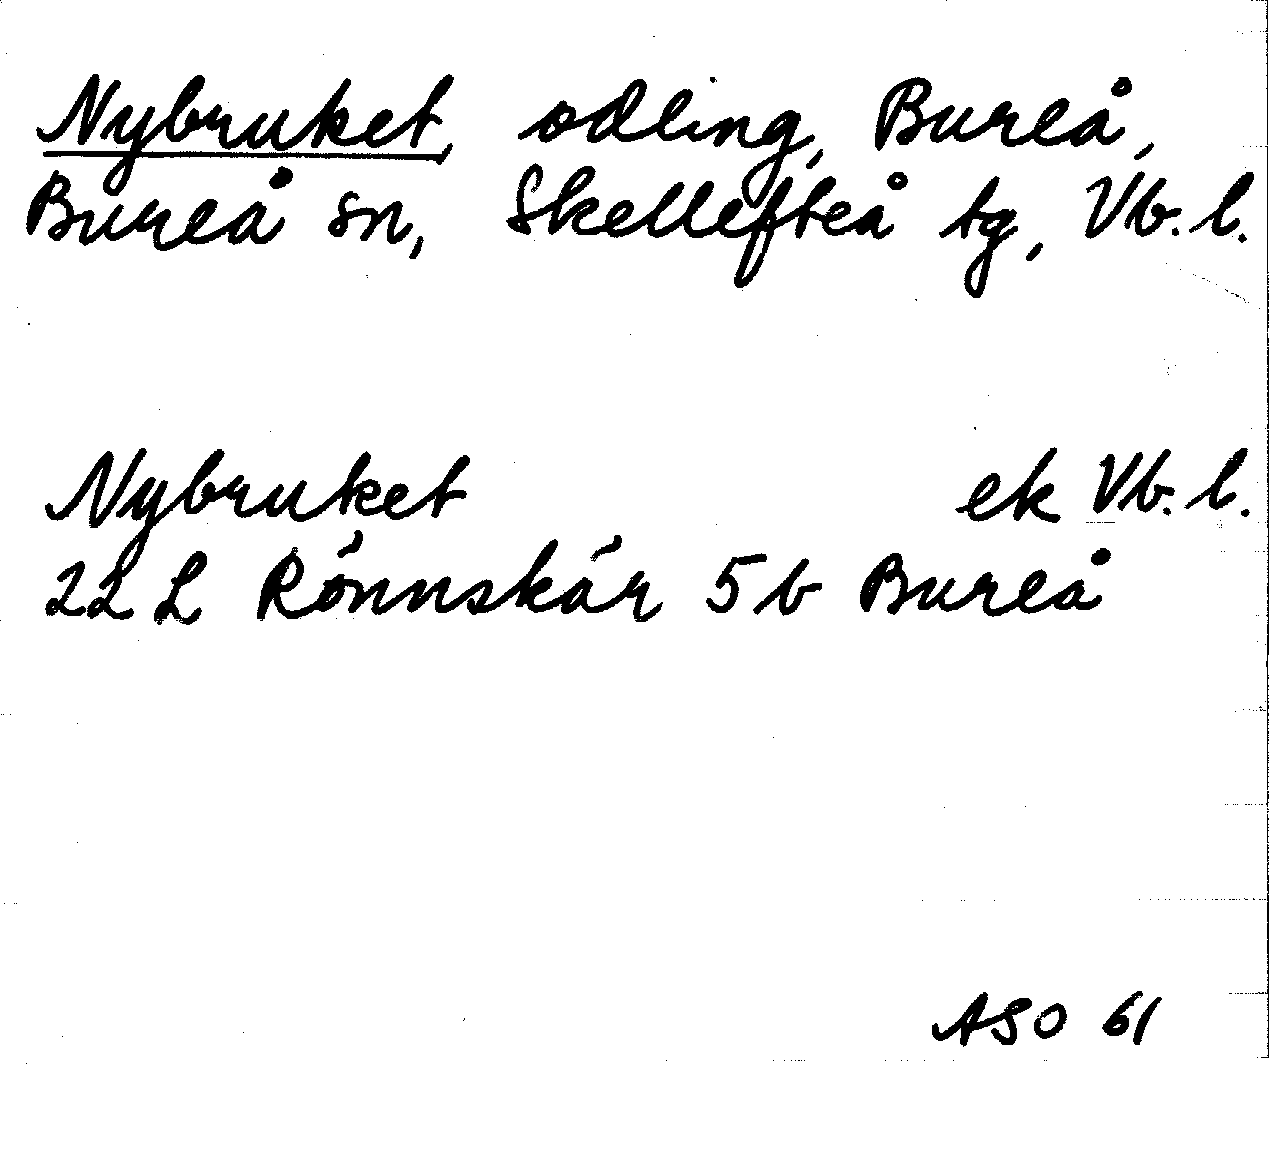 Nybruket, odling, Bureå,
Bureå sn, Skellefteå tg, Vb. l.
Nybruket ek Vb. l.
22 L Rönnskär 5 b Bureå
ASO 61